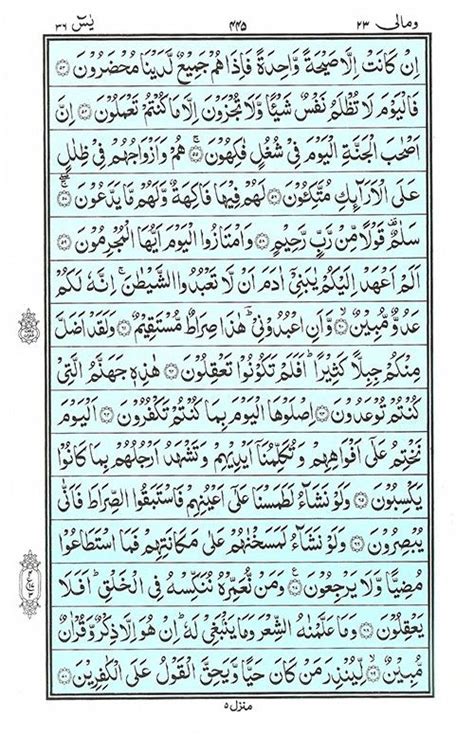 ومالی ۲۳ ۴۴۵ یٰسٓ ۳۶
اِنْ كَانَتْ اِلَّا صَيْحَةً وَّاحِدَةً فَاِذَا هُمْ جَمِيْعٌ لَّدَيْنَا مُحْضَرُوْنَ ۵۳
فَالْيَوْمَ لَا تُظْلَمُ نَفْسٌ شَيْـًٔا وَّلَا تُجْزَوْنَ اِلَّا مَا كُنْتُمْ تَعْمَلُوْنَ ۵۴ اِنَّ
اَصْحٰبَ الْجَنَّةِ الْيَوْمَ فِيْ شُغُلٍ فٰكِهُوْنَ ۵۵ هُمْ وَاَزْوَاجُهُمْ فِيْ ظِلٰلٍ
عَلَى الْاَرَآئِكِ مُتَّكِـُٔوْنَ ۵۶ لَهُمْ فِيْهَا فَاكِهَةٌ وَّلَهُمْ مَّا يَدَّعُوْنَ ۵۷
سَلٰمٌ قَوْلًا مِّنْ رَّبٍّ رَّحِيْمٍ ۵۸ وَامْتَازُوا الْيَوْمَ اَيُّهَا الْمُجْرِمُوْنَ ۵۹
اَلَمْ اَعْهَدْ اِلَيْكُمْ يٰبَنِيْٓ اٰدَمَ اَنْ لَّا تَعْبُدُوا الشَّيْطٰنَ اِنَّهٗ لَكُمْ
عَدُوٌّ مُّبِيْنٌ ۶۰ وَّاَنِ اعْبُدُوْنِيْ هٰذَا صِرَاطٌ مُّسْتَقِيْمٌ ۶۱ وَلَقَدْ اَضَلَّ
مِنْكُمْ جِبِلًّا كَثِيْرًا اَفَلَمْ تَكُوْنُوْا تَعْقِلُوْنَ ۶۲ هٰذِهٖ جَهَنَّمُ الَّتِيْ
كُنْتُمْ تُوْعَدُوْنَ ۶۳ اِصْلَوْهَا الْيَوْمَ بِمَا كُنْتُمْ تَكْفُرُوْنَ ۶۴ اَلْيَوْمَ
نَخْتِمُ عَلٰٓى اَفْوَاهِهِمْ وَتُكَلِّمُنَآ اَيْدِيْهِمْ وَتَشْهَدُ اَرْجُلُهُمْ بِمَا كَانُوْا
يَكْسِبُوْنَ ۶۵ وَلَوْ نَشَآءُ لَطَمَسْنَا عَلٰٓى اَعْيُنِهِمْ فَاسْتَبَقُوا الصِّرَاطَ فَاَنّٰى
يُبْصِرُوْنَ ۶۶ وَلَوْ نَشَآءُ لَمَسَخْنٰهُمْ عَلٰى مَكَانَتِهِمْ فَمَا اسْتَطَاعُوْا
مُضِيًّا وَّلَا يَرْجِعُوْنَ ۶۷ وَمَنْ نُّعَمِّرْهُ نُنَكِّسْهُ فِي الْخَلْقِ اَفَلَا
يَعْقِلُوْنَ ۶۸ وَمَا عَلَّمْنٰهُ الشِّعْرَ وَمَا يَنْۢبَغِيْ لَهٗ اِنْ هُوَ اِلَّا ذِكْرٌ وَّقُرْاٰنٌ
مُّبِيْنٌ ۶۹ لِّيُنْذِرَ مَنْ كَانَ حَيًّا وَّيَحِقَّ الْقَوْلُ عَلَى الْكٰفِرِيْنَ ۷۰
منزل ۵